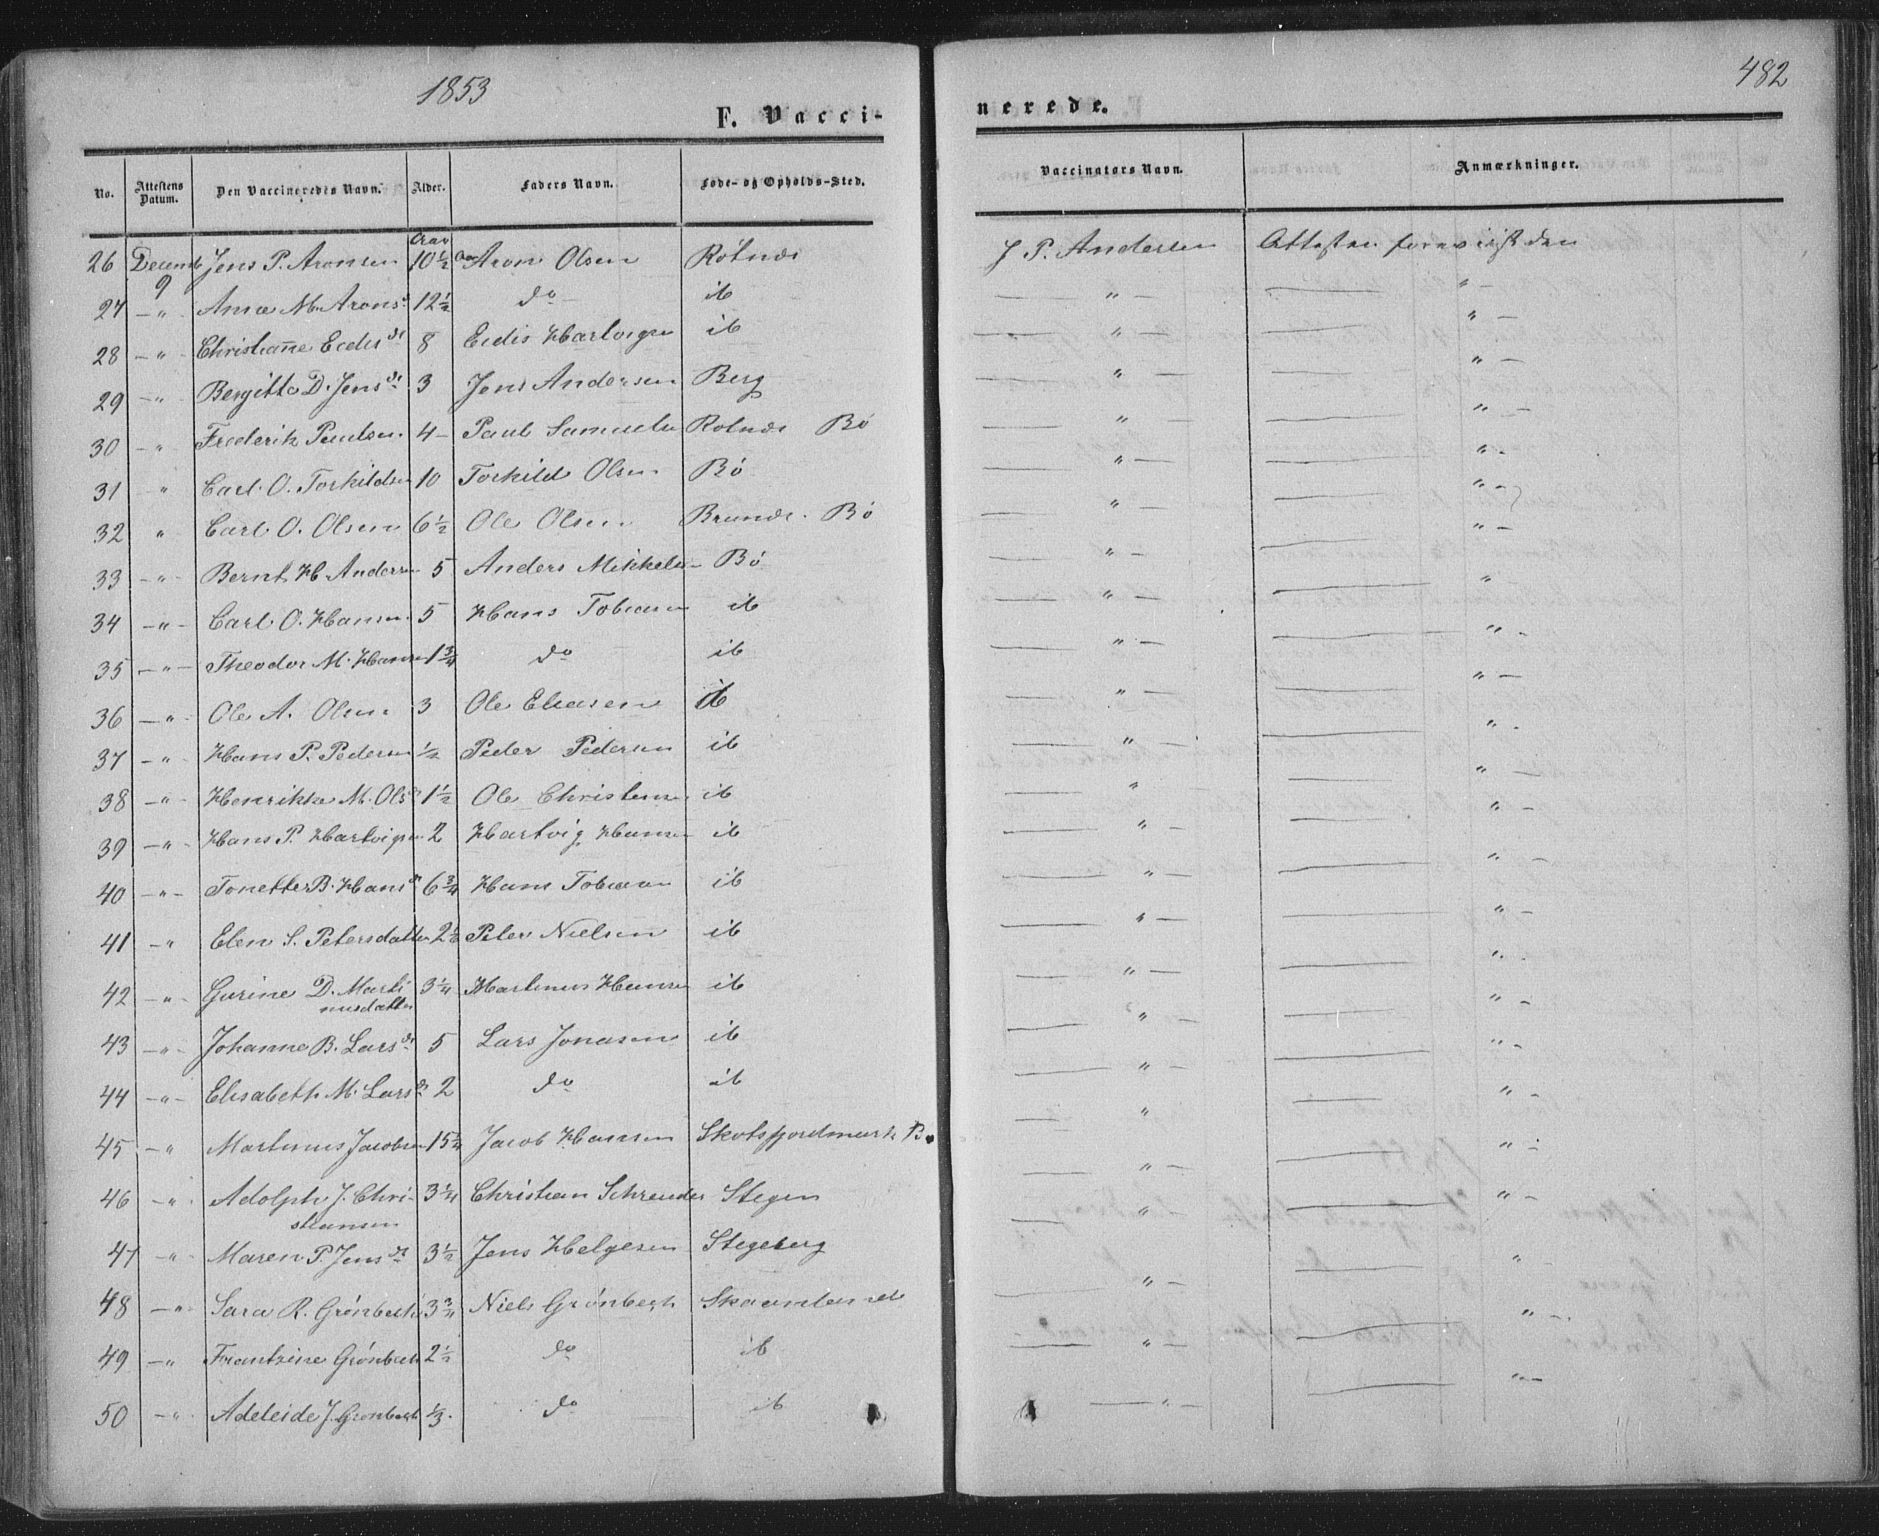 1853
482
F. Vacci-
nerede.
No. Attestens Datum. Den Vaccineredes Navn. Alder. Faders Navn. Føde- og Opholds-Sted. Vaccinators Navn. Anmærkninger.
26 Decemb 9 Jens P. Aronsen Aar 10 1/2 Aron Olsen Rotnæs J P. Andersen Attesten foreviist den
27 — " Anne M. Arons d 12 1/2 do ib — " — — " —
28 — " — Christiane Eedis dr 8 Eedis Hartvigsen ib — " — — " —
29 — " Bergitte D. Jens dr 3 Jens Andersen Berg — " — — " —
30 " Frederik Paulsen 4 — Paul Samuels Rotnæs Bø — " — — " —
31 " Carl O. Torkildsen 10 Torkild Olsen Bø — " — — " -
32 " Carl O. Olsen 6 1/2 Ole Olsen Bø — " — — " -
33 - " - Bernt H. Anders 5 Anders Mikkels Bø — " — — " —
34 — " — Carl O. Hansen 5 Hans Tobiasen ib — " — — "
35 — " — Theodor M. Hansen 1 3/4 do ib — " — — " -
36 — " - Ole A. Olsen 3 Ole Eliasen ib — " — — " —
37 — " Hans P. Pedersen 1/2 Peder Pedersen ib — " — — " .
38 — " - Henrikke M. Ols d 1 1/2 Ole Christens ib — " — " —
39 — " - Hans P. Hartvigsen 2 Hartvig Hansen ib — " — — " —
40 — " - Tonette B. Hans dr 6 3/4 Hans Tobiasen ib — " — — " —
41 — " Elen S. Petersdatter 2 Peter Nielsen ib — " — — " —
42 — " - Gurine D. Marti
nusdatter 3 1/4 Martinus Hansen ib — " — — " .
43 — " - Johanne B. Lars dr 5 Lars Jonasen ib — " — — " —
44 — " - Elisabeth M. Lars d 2 do ib — " — — " -
45 — " Martinus Jacobsen 15 Jacob Hansen Skotsfjordmark B. — " — " —
46 — " Adolph J. Chri-
stiansen 3 1/4 Christian Schreuder Stegen — " — — " -
47 " Maren P. Jens dr 3 1/2 Jens Helgesen Stegeberg — " — — " —
48 — " Sara R. Grønbech 3 3/4 Niels Grønbech Skaanland — " — — "
49 — " Frantzine Grønbech 2 1/2 do ib — " — — " -
50 — " Adeleide J. Grønbech 1/3 do ib — " — — " —